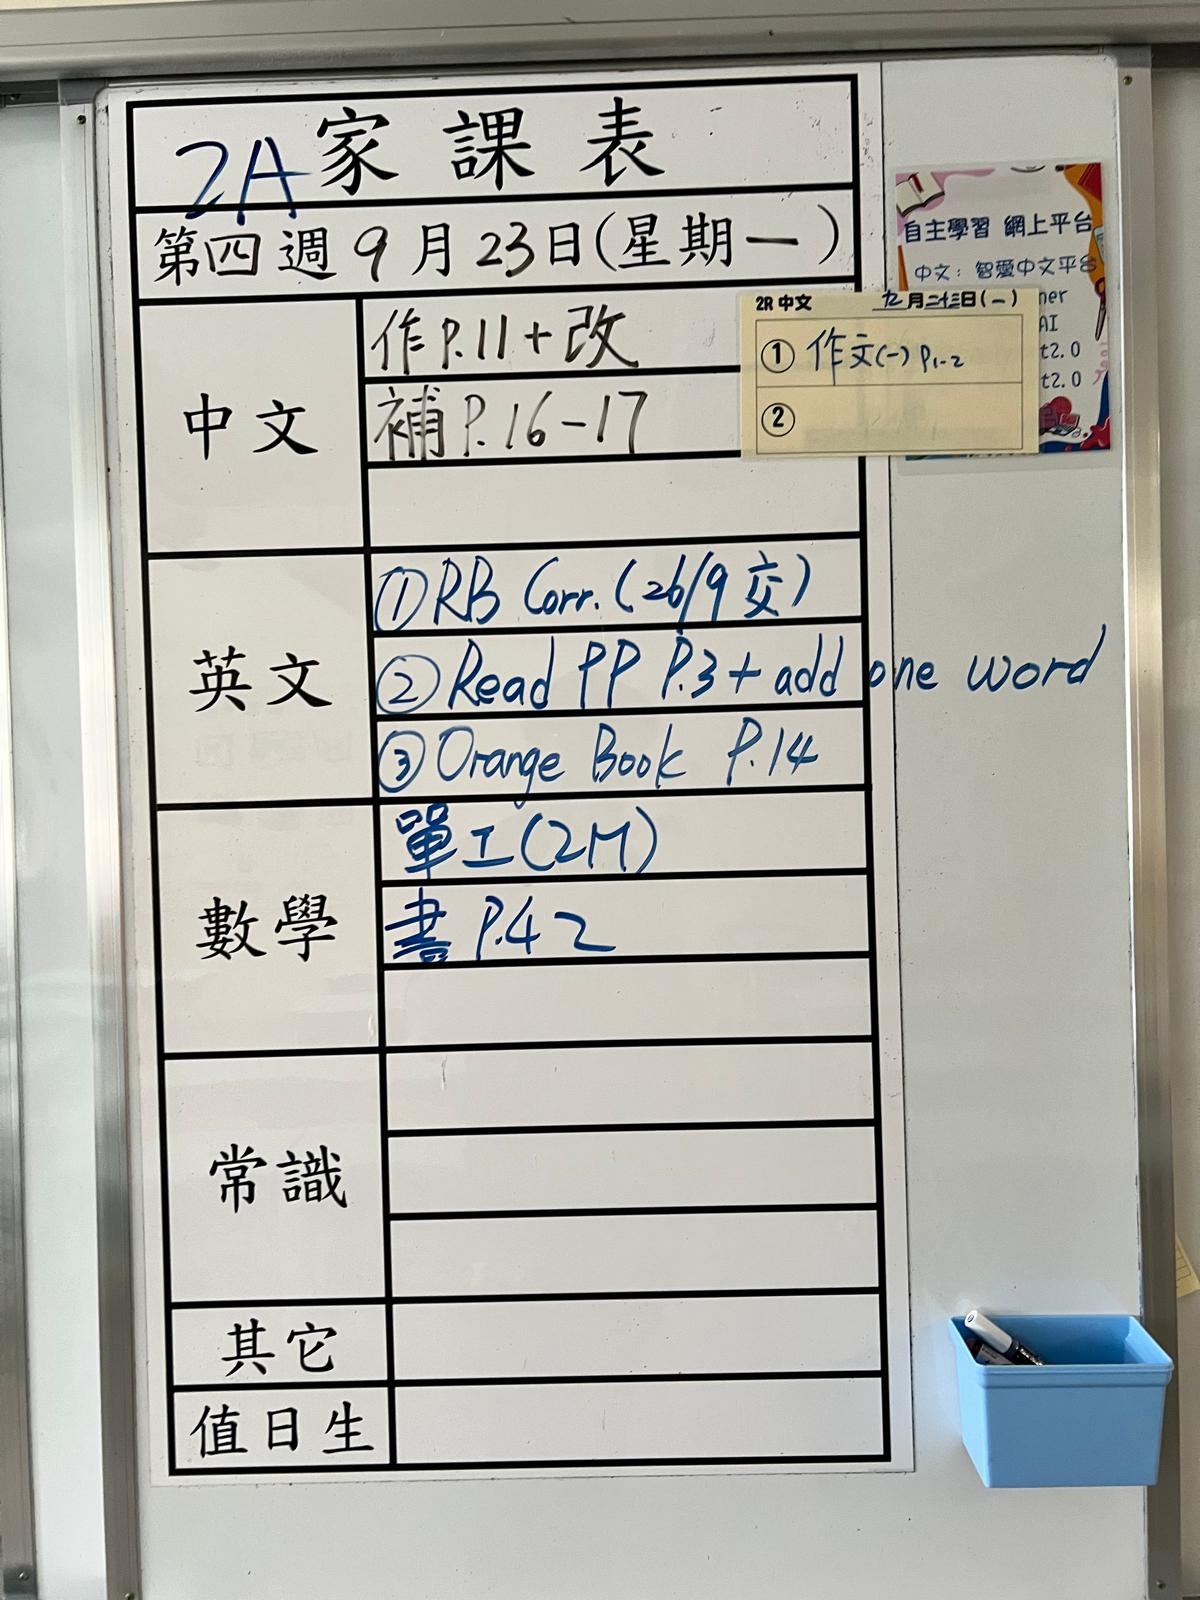 2A 家課表
第四週 9月23日(星期一)
中文
作P.11+改
補P.16-17
英文
①RB Corr.(26/9交)
②Read PP P.3+add one word
③Orange Book P.14
數學
單工(2M)
書 P.42
常識
其它
值日生
自主學習 網上平台
中文：智愛中文平台
ner
AI
t2.0
t2.0
2R 中文 九月二十三日(一)
① 作文(一) P1-2
②